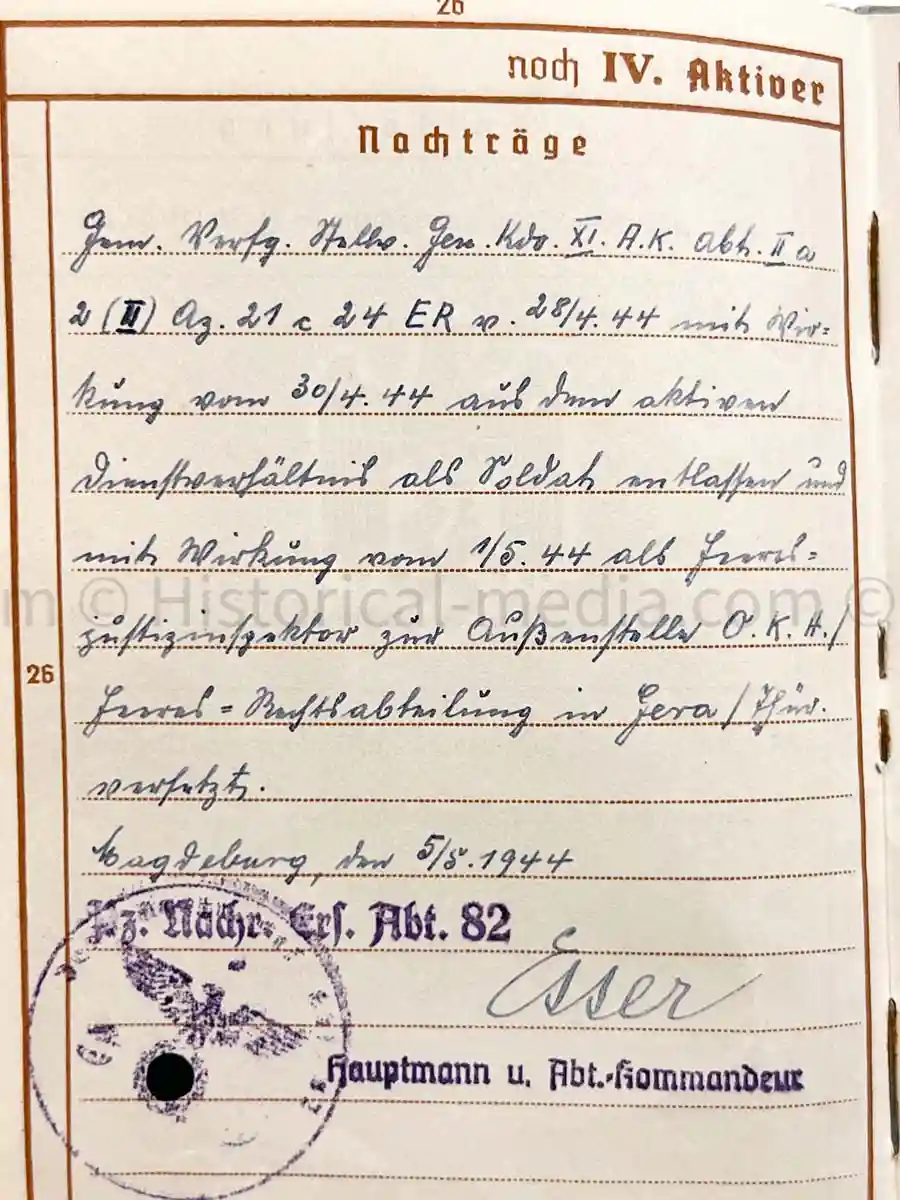 26
noch IV. Aktiver
Nachträge
Gem. Verfg. Stellv. Gen. Kdo. XI. A.K. Abt. II a
2 (II) Az. 21 c 24 ER v. 28/4.44 mit Wir=
kung vom 30/4.44 aus dem aktiven
Dienstverhältnis als Soldat entlassen und
mit Wirkung vom 1/5.44 als Heeres=
justizinspektor zur Außenstelle O.K.H./
Heeres=Rechtsabteilung in Gera/Thür.
26
versetzt.
Magdeburg, den 5/5.1944
Pz. Nachr. Ers. Abt. 82
Esser
Hauptmann u. Abt.-Kommandeur
m © Historical-media.com ©